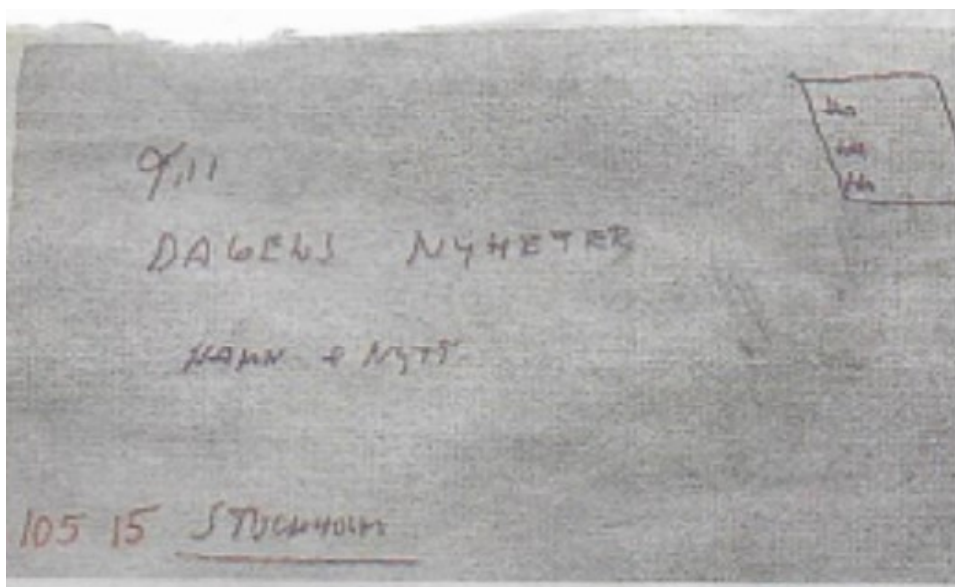 Till
DAGENS NYHETER
NAMN & NYTT
105 15 STOCKHOLM